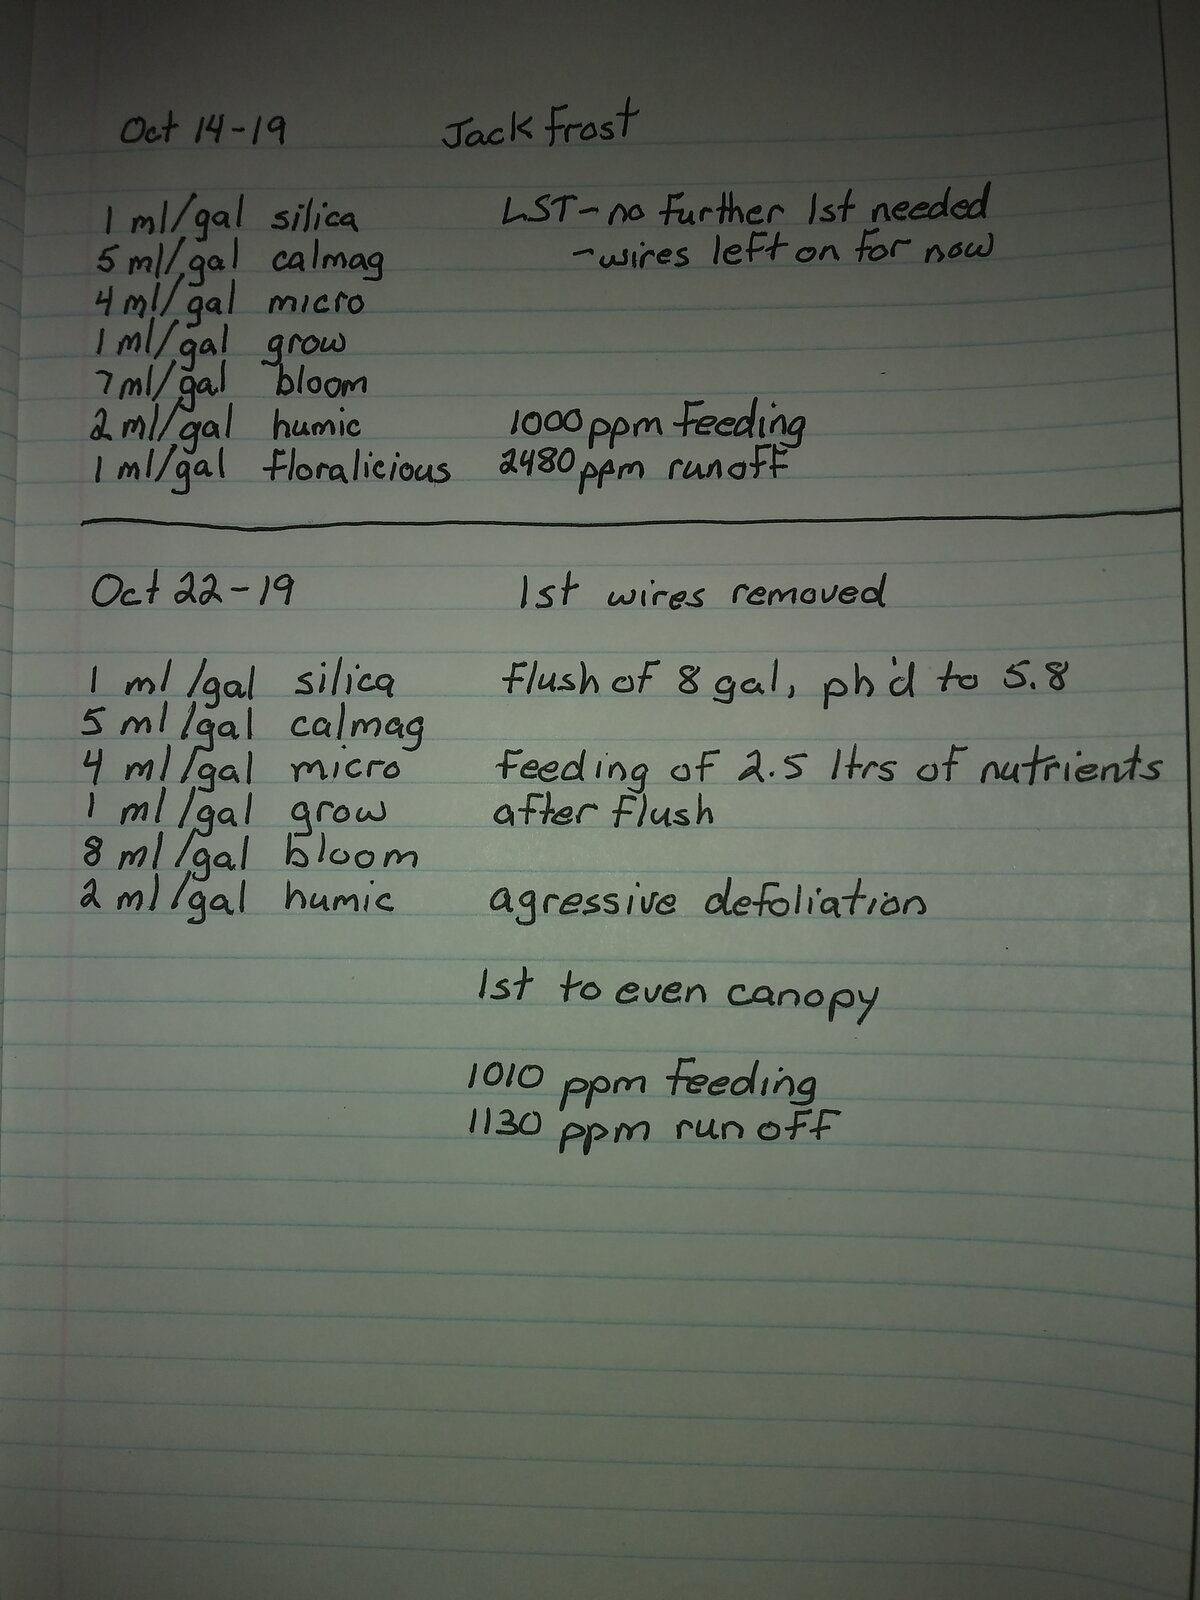 Oct 14-19 Jack Frost
1 ml/gal silica LST - no further lst needed
5 ml/gal calmag - wires left on for now
4 ml/gal micro
1 ml/gal grow
7 ml/gal bloom
2 ml/gal humic 1000 ppm feeding
1 ml/gal floralicious 2480 ppm runoff
Oct 22-19 lst wires removed
1 ml/gal silica flush of 8 gal, ph'd to 5.8
5 ml/gal calmag
4 ml/gal micro feeding of 2.5 ltrs of nutrients
1 ml/gal grow after flush
8 ml/gal bloom
2 ml/gal humic agressive defoliation
lst to even canopy
1010 ppm feeding
1130 ppm run off